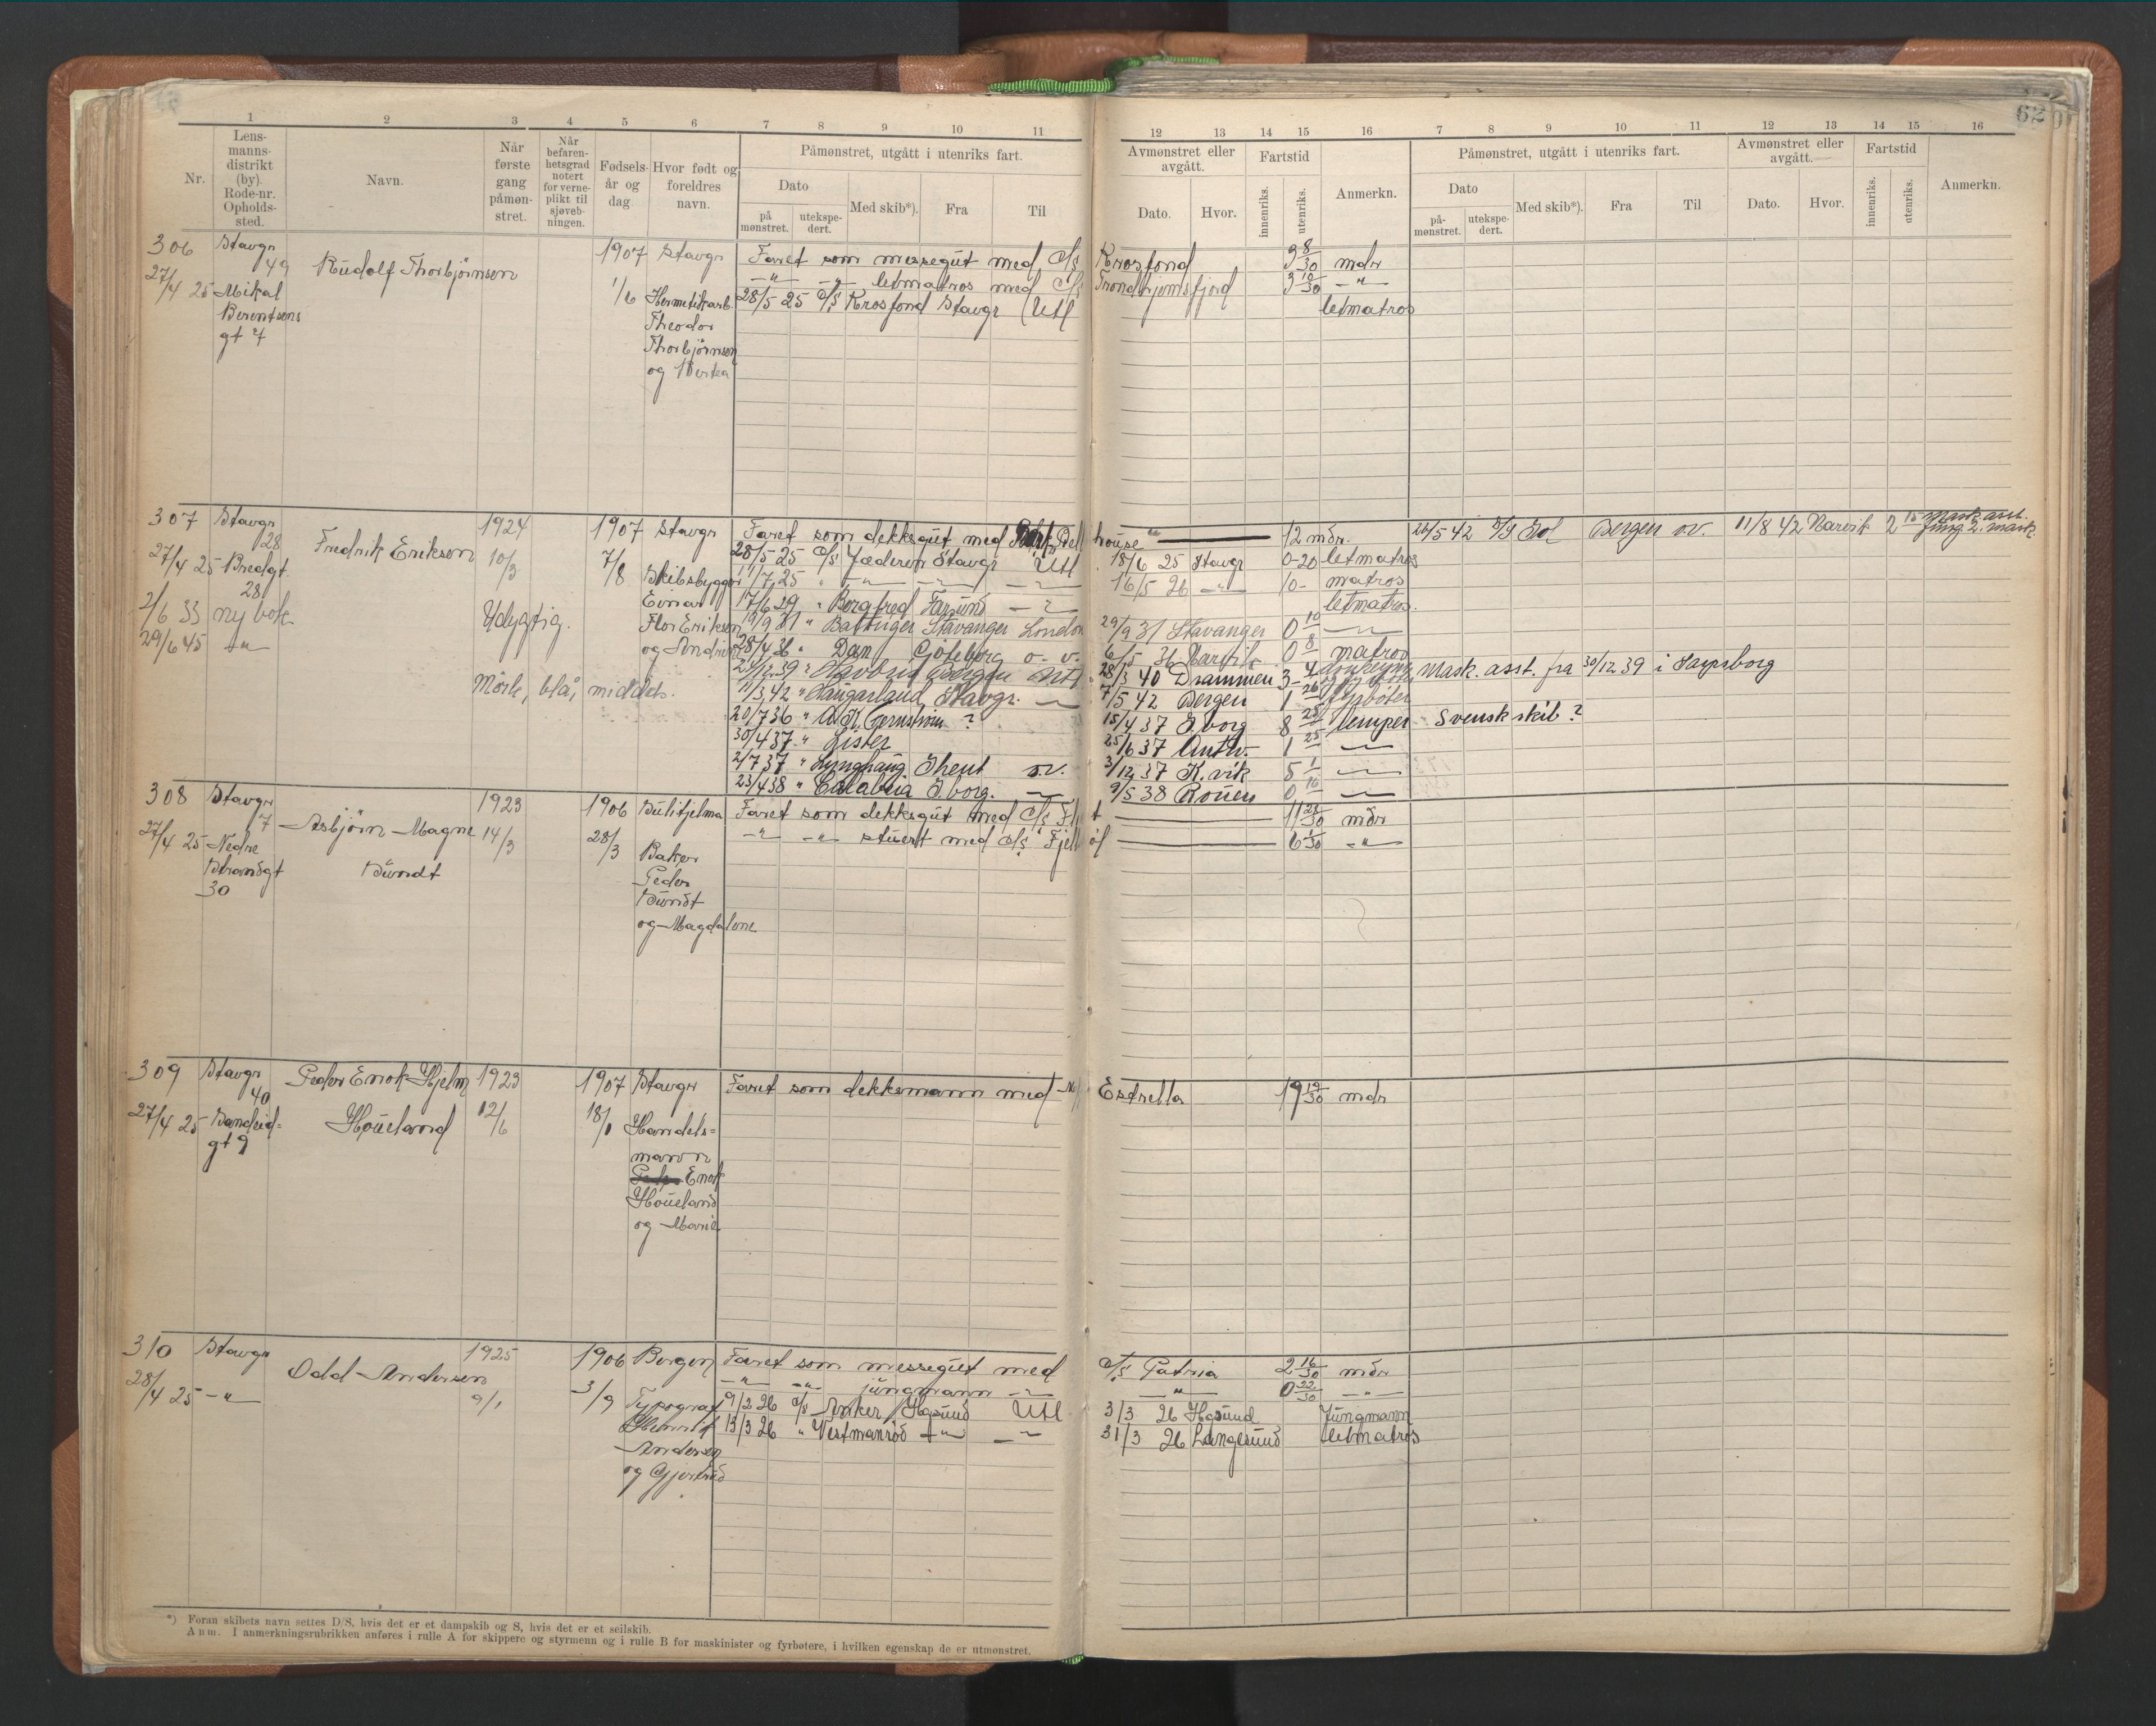 62
1 2 3 4 5 6 7 8 9 10 11 12 13 14 15 16 7 8 9 10 11 12 13 14 15 16
Nr.
Lens-
manns-
distrikt
(by).
Rode-nr.
Opholds-
sted.
Navn.
Når
første
gang
påmøn-
stret.
Når
befaren-
hetsgrad
notert
for verne-
plikt til
sjøveb-
ningen.
Fødsels-
år og
dag
Hvor født og
foreldres
navn.
Påmønstret, utgått i utenriks fart.
Dato
på
mønstret.
utekspe-
dert.
Med skib*).
Fra
Til
Avmønstret eller
avgått.
Dato.
Hvor.
Fartstid
innenriks.
utenriks.
Anmerkn.
Påmønstret, utgått i utenriks fart.
Dato
på-
mønstret.
utekspe-
dert.
Med skib*).
Fra
Til
Avmønstret eller
avgått.
Dato.
Hvor.
Fartstid
innenriks.
utenriks.
Anmerkn.
306 Stavgr 49 Rudolf Thorbjörnsen 1907 Stavgr Faret som messegut med D/S Krosfond 3 8/30 mdr
27/4 25 Mikal 1/6 Hermetikarb. -"- -"- letmatros med D/S Trondhjemsfjord 3 10/30 -"-
Berentsens Theodor 28/5 25 D/S Krosfond Stavgr Utl letmatros
gt 7 Thorbjörnsen
og Bertea
307 Stavgr 28 Fredrik Eriksen 1924 1907 Stavgr Faret som dekksgut med Pelthouse 12 mdr. 26/5 42 D/S Sol Bergen o.v. 11/8 42 Narvik 2 15 Mask. asst.
27/4 25 Bredgt. 28 10/3 7/8 Skibsbygger 28/5 25 D/S Jæderen Stavgr Utl 18/6 25 Stavgr 0-20 letmatros
17/7 25 " -"- 16/5 26 -"- 10- matros
2/6 33 ny bok. Udygtig. Einar 17/6 29 " Borgfred Farsund letmatros.
29/6 45 -"- Flor Eriksen 19/9 31 " Stavanger London 29/9 31 Stavanger 0 10
og Andrine 28/4 36 " Dan Göteborg o. v. 6/5 36 Narvik 0 8 matros
Mörk, blå, middels. Bergen Utl 28/3 40 Drammen 3-4 Mask. asst. fra 30/12 39 i Sarpsborg
11/3 42 " Haugarland Stavgr. 7/5 42 Bergen 1 26 fyrböter
20/7 36 " A. K. Fernström ? 15/4 37 G. borg 8 25 lemper Svensk skib?
30/4 37 " Lister 25/6 37 Antw. 1 25
2/7 37 " Lynghaug Ghent o.v. 3/12 37 K. vik 5 1
23/4 38 " Calabria G. borg. 9/5 38 Rouen 0 16
308 Stavgr 7 Asbjörn Magne 1923 1906 Sulitjelma Faret som dekksgut med D/S 11 28/30 mdr
27/4 25 Nedre Bundt 14/3 28/3 Baker -"- -"- stuert med D/S Fjell 6 1/30 -"-
Strandgt Peder
30 Bundt
og Magdalene
309 Stavgr 40 Peder Enok Hjelm 1923 1907 Stavgr Faret som dekksmann med M/S Estrella 19 19/30 mdr
27/4 25 Sandeid= Houeland 12/6 18/1 Handels=
gt 9 mann
Enok
Houeland
og Marie
310 Stavgr Odd Andersen 1925 1906 Bergen Faret som messegut med D/S Patria 2 16/30 mdr
28/4 25 -"- 9/1 3/9 Typograf -"- -"- jungmann -"- -"- 0 22/30 -"-
Henrik 9/2 26 D/S Anker Hgsund Utl 3/3 26 Hgsund Jungmann
Andersen 13/3 26 " Vestmanröd -"- 31/3 26 Langesund letmatros
og Gjertrud
*) Foran skibets navn settes D/S, hvis det er et dampskib og S, hvis det er et seilskib.
Anm. I anmerkningsrubrikken anføres i rulle A for skippere og styrmenn og i rulle B for maskinister og fyrbøtere, i hvilken egenskap de er utmønstret.